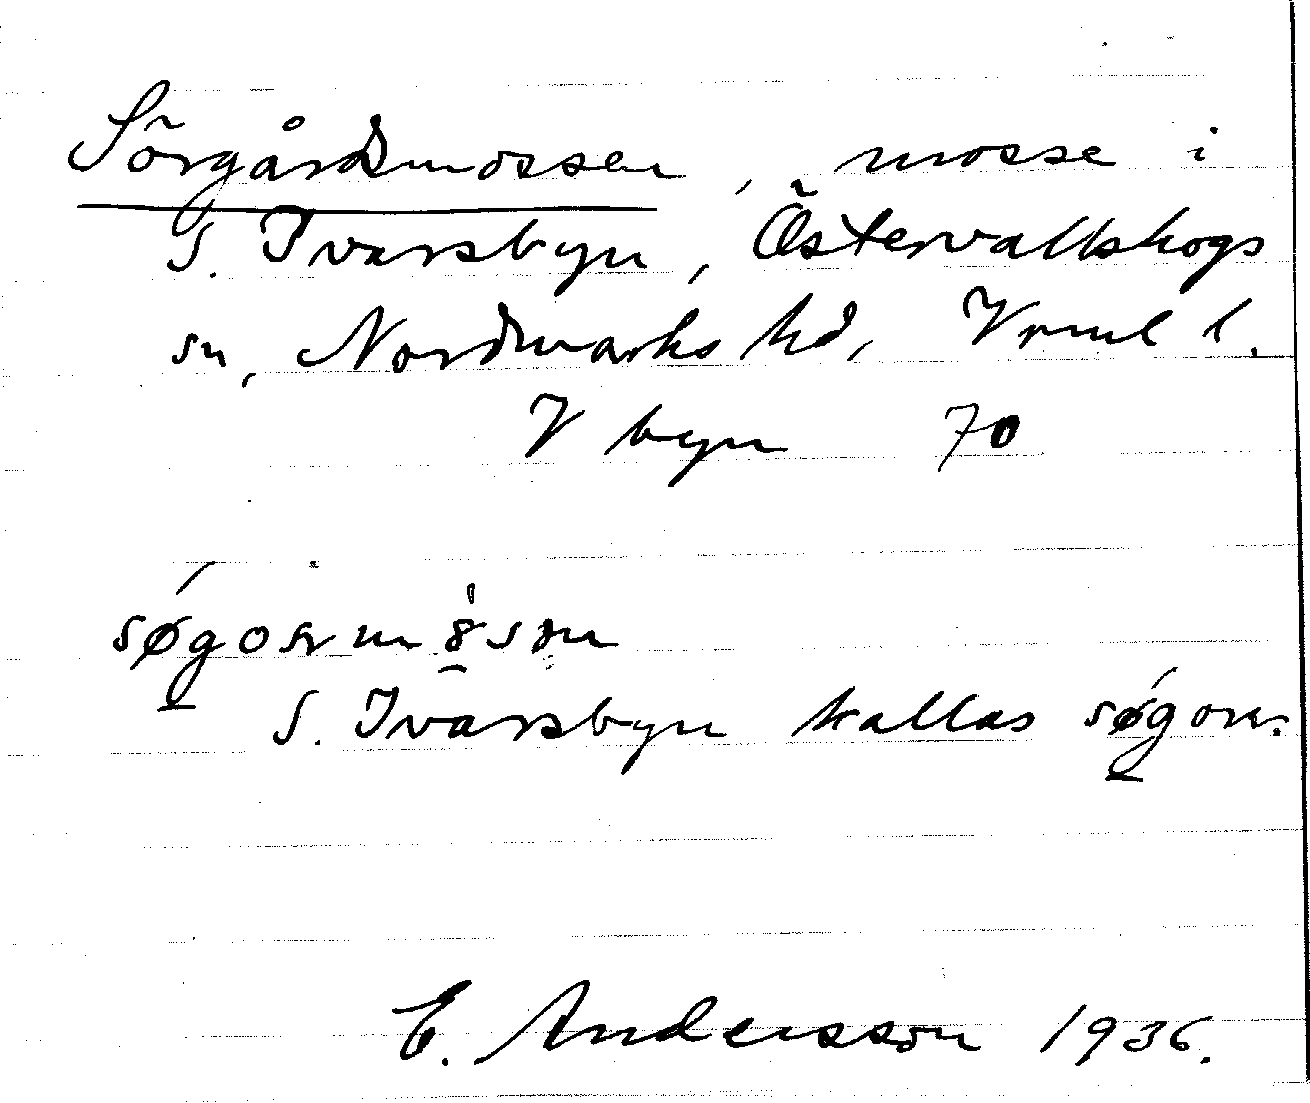 Sörgårdsmossen, mosse i
S. Ivarsbyn, Östervallskogs
sn, Nordmarks hd, Vrml l.
V byn 70
S. Ivarsbyn kallas
E. Andersson 1936.